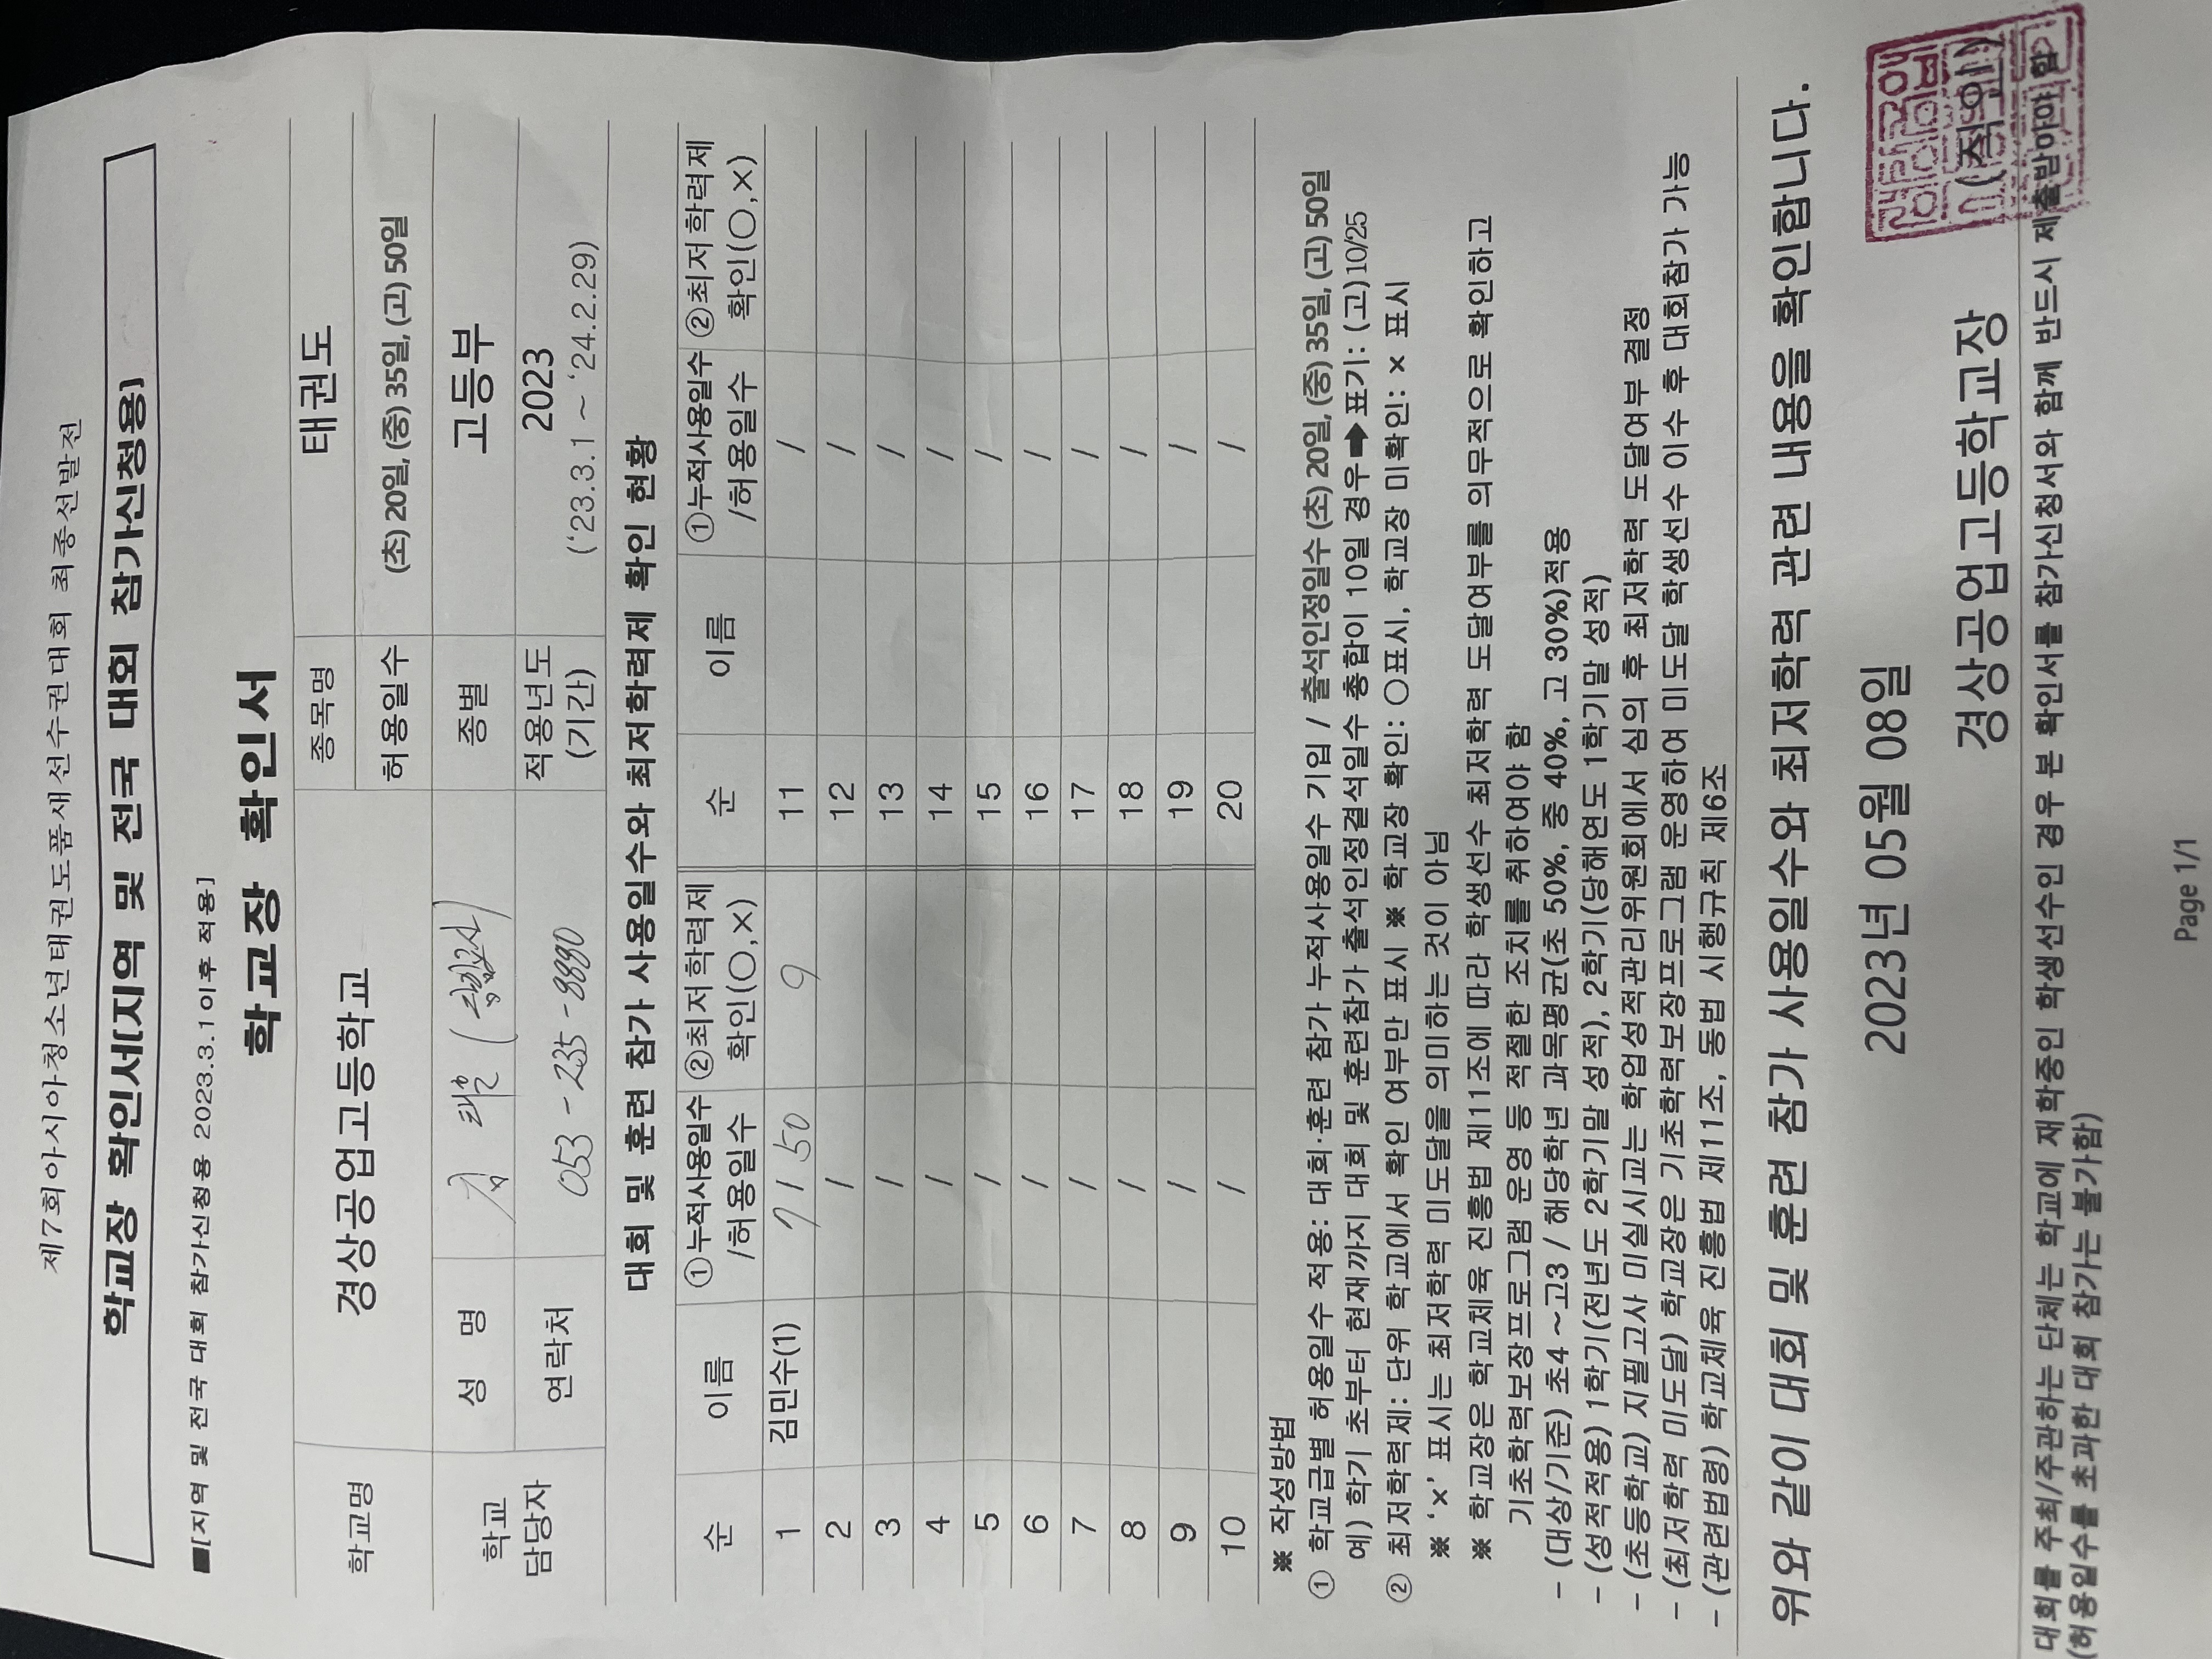 제7회아시아청소년태권도품새선수권대회 최종선발전
학교장 확인서[지역 및 전국 대회 참가신청용]
■[지역 및 전국 대회 참가신청용 2023.3.1이후 적용]
학교장 확인서
학교명 경상공업고등학교 종목명 태권도
허용일수 (초) 20일, (중) 35일, (고) 50일
학교 담당자 성 명 종별 고등부
연락처 053-235-8880 적용년도 (기간) 2023 ('23.3.1 ~ '24.2.29)
대회 및 훈련 참가 사용일수와 최저학력제 확인 현황
순 이름 ①누적사용일수 /허용일수 ②최저학력제 확인(○,×) 순 이름 ①누적사용일수 /허용일수 ②최저학력제 확인(○,×)
1 김민수(1) 7 / 50 11 /
2 / 12 /
3 / 13 /
4 / 14 /
5 / 15 /
6 / 16 /
7 / 17 /
8 / 18 /
9 / 19 /
10 / 20 /
※ 작성방법
① 학교급별 허용일수 적용: 대회·훈련 참가 누적사용일수 기입 / 출석인정일수 (초) 20일, (중) 35일, (고) 50일
예) 학기 초부터 현재까지 대회 및 훈련참가 출석인정결석일수 총합이 10일 경우 ➡ 표기: (고) 10/25
② 최저학력제: 단위 학교에서 확인 여부만 표시 ※ 학교장 확인: ○표시, 학교장 미확인: × 표시
※ '×' 표시는 최저학력 미도달을 의미하는 것이 아님
※ 학교장은 학교체육 진흥법 제11조에 따라 학생선수 최저학력 도달여부를 의무적으로 확인하고
기초학력보장프로그램 운영 등 적절한 조치를 취하여야 함
- (대상/기준) 초4 ~고3 / 해당학년 과목평균(초 50%, 중 40%, 고 30%)적용
- (성적적용) 1학기(전년도 2학기말 성적), 2학기(당해연도 1학기말 성적)
- (초등학교) 지필고사 미실시교는 학업성적관리위원회에서 심의 후 최저학력 도달여부 결정
- (최저학력 미도달) 학교장은 기초학력보장프로그램 운영하여 미도달 학생선수 이수 후 대회참가 가능
- (관련법령) 학교체육 진흥법 제11조, 동법 시행규칙 제6조
위와 같이 대회 및 훈련 참가 사용일수와 최저학력 관련 내용을 확인합니다.
2023년 05월 08일
경상공업고등학교장 (직인)
대회를 주최/주관하는 단체는 학교에 재학중인 학생선수인 경우 본 확인서를 참가신청서와 함께 반드시 제출받아야 함
(허용일수를 초과한 대회 참가는 불가함)
Page 1/1